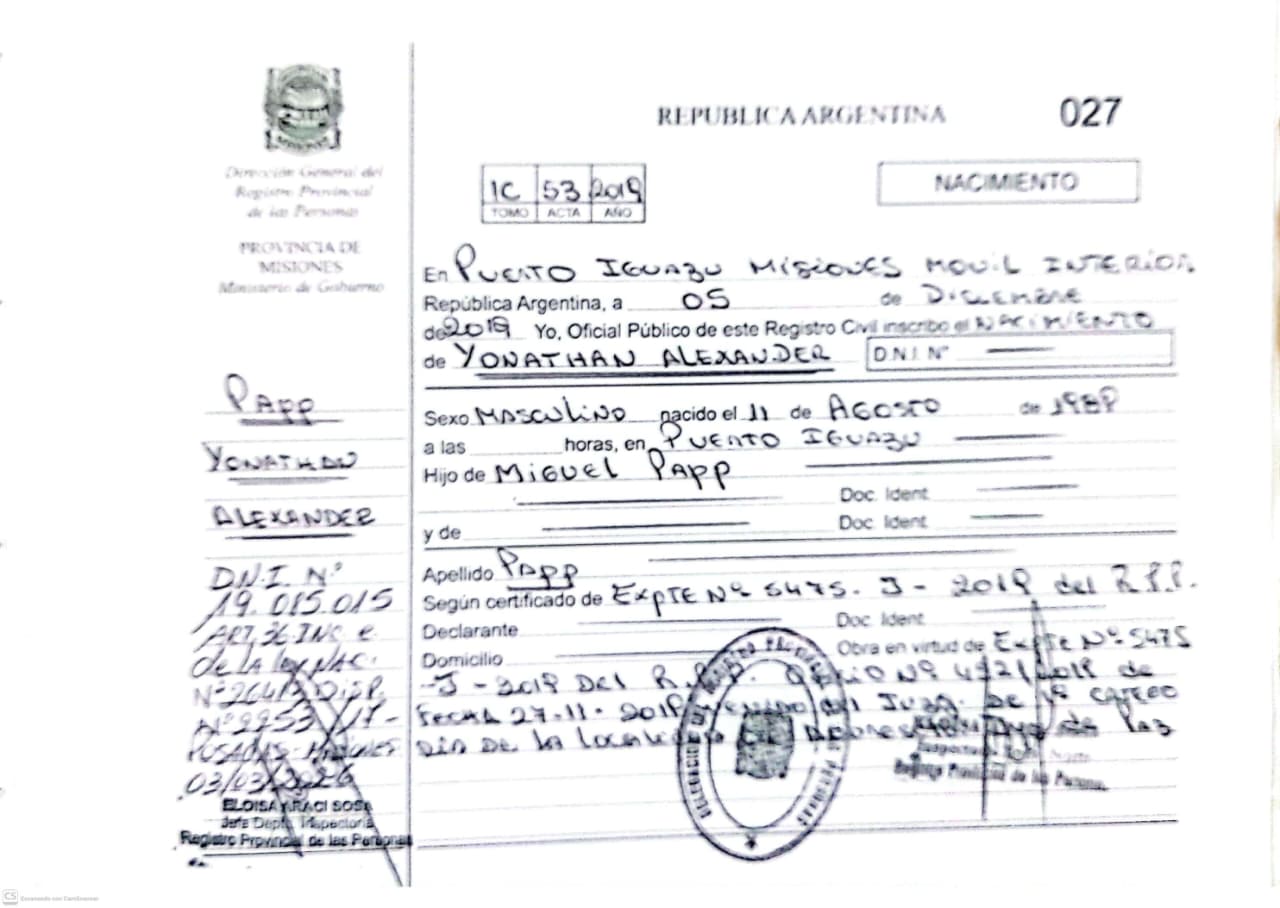 REPUBLICA ARGENTINA
027
Dirección General del
Registro Provincial
de las Personas
PROVINCIA DE
MISIONES
Ministerio de Gobierno
IC 53 2019
TOMO ACTA AÑO
NACIMIENTO
En PUERTO IGUAZU MISIONES MOVIL INTERIOR
República Argentina, a 05 de DICIEMBRE
de 2019 Yo, Oficial Público de este Registro Civil inscribo el NACIMIENTO
de YONATHAN ALEXANDER D.N.I. Nº
Sexo MASCULINO nacido el 11 de AGOSTO de
a las horas, en PUERTO IGUAZU
Hijo de MIGUEL PAPP
Doc. Ident.
y de Doc. Ident.
Apellido PAPP
Según certificado de EXPTE Nº 5475. J - 2019 del R.P.P.
Declarante Doc. Ident.
Domicilio Obra en virtud de EXPTE Nº 5475
-J - 2019 DEL R.P.P. OFICIO Nº
FECHA 27-11-2019 DEL JUZG. DE 1º CATEGO
RIA DE LA LOCALIDAD DE de Paz
PAPP
YONATHAN
ALEXANDER
D.N.I. Nº
19.015.015
ART. 36 INC e
de LA ley NAC.
POSADAS-MISIONES
03/03/
ELOISA ARACI SOSA
Jefa Depto. Inspectoría
Registro Provincial de las Personas
Registro Provincial de las Personas
CS Escaneado con CamScanner